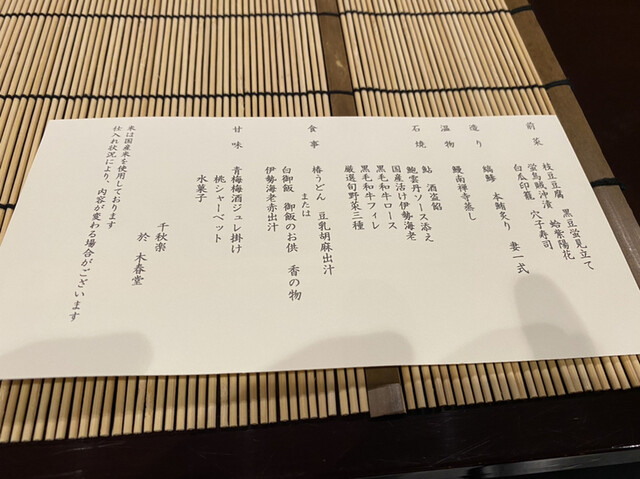 前菜
枝豆豆腐 黒豆蛍見立て
蛍烏賊沖漬 蛤紫陽花
白瓜印籠 穴子寿司
造り
縞鯵 本鮪炙り 妻一式
温物
鰻南禅寺蒸し
石焼
鮎 酒盗餡
鮑雲丹ソース添え
国産活け伊勢海老
黒毛和牛ロース
黒毛和牛フィレ
厳選旬野菜三種
食事
椿うどん 豆乳胡麻出汁
または
白御飯 御飯のお供 香の物
伊勢海老赤出汁
甘味
青梅梅酒ジュレ掛け
桃シャーベット
水菓子
千秋楽
於 木春堂
米は国産米を使用しております
仕入れ状況により、内容が変わる場合がございます